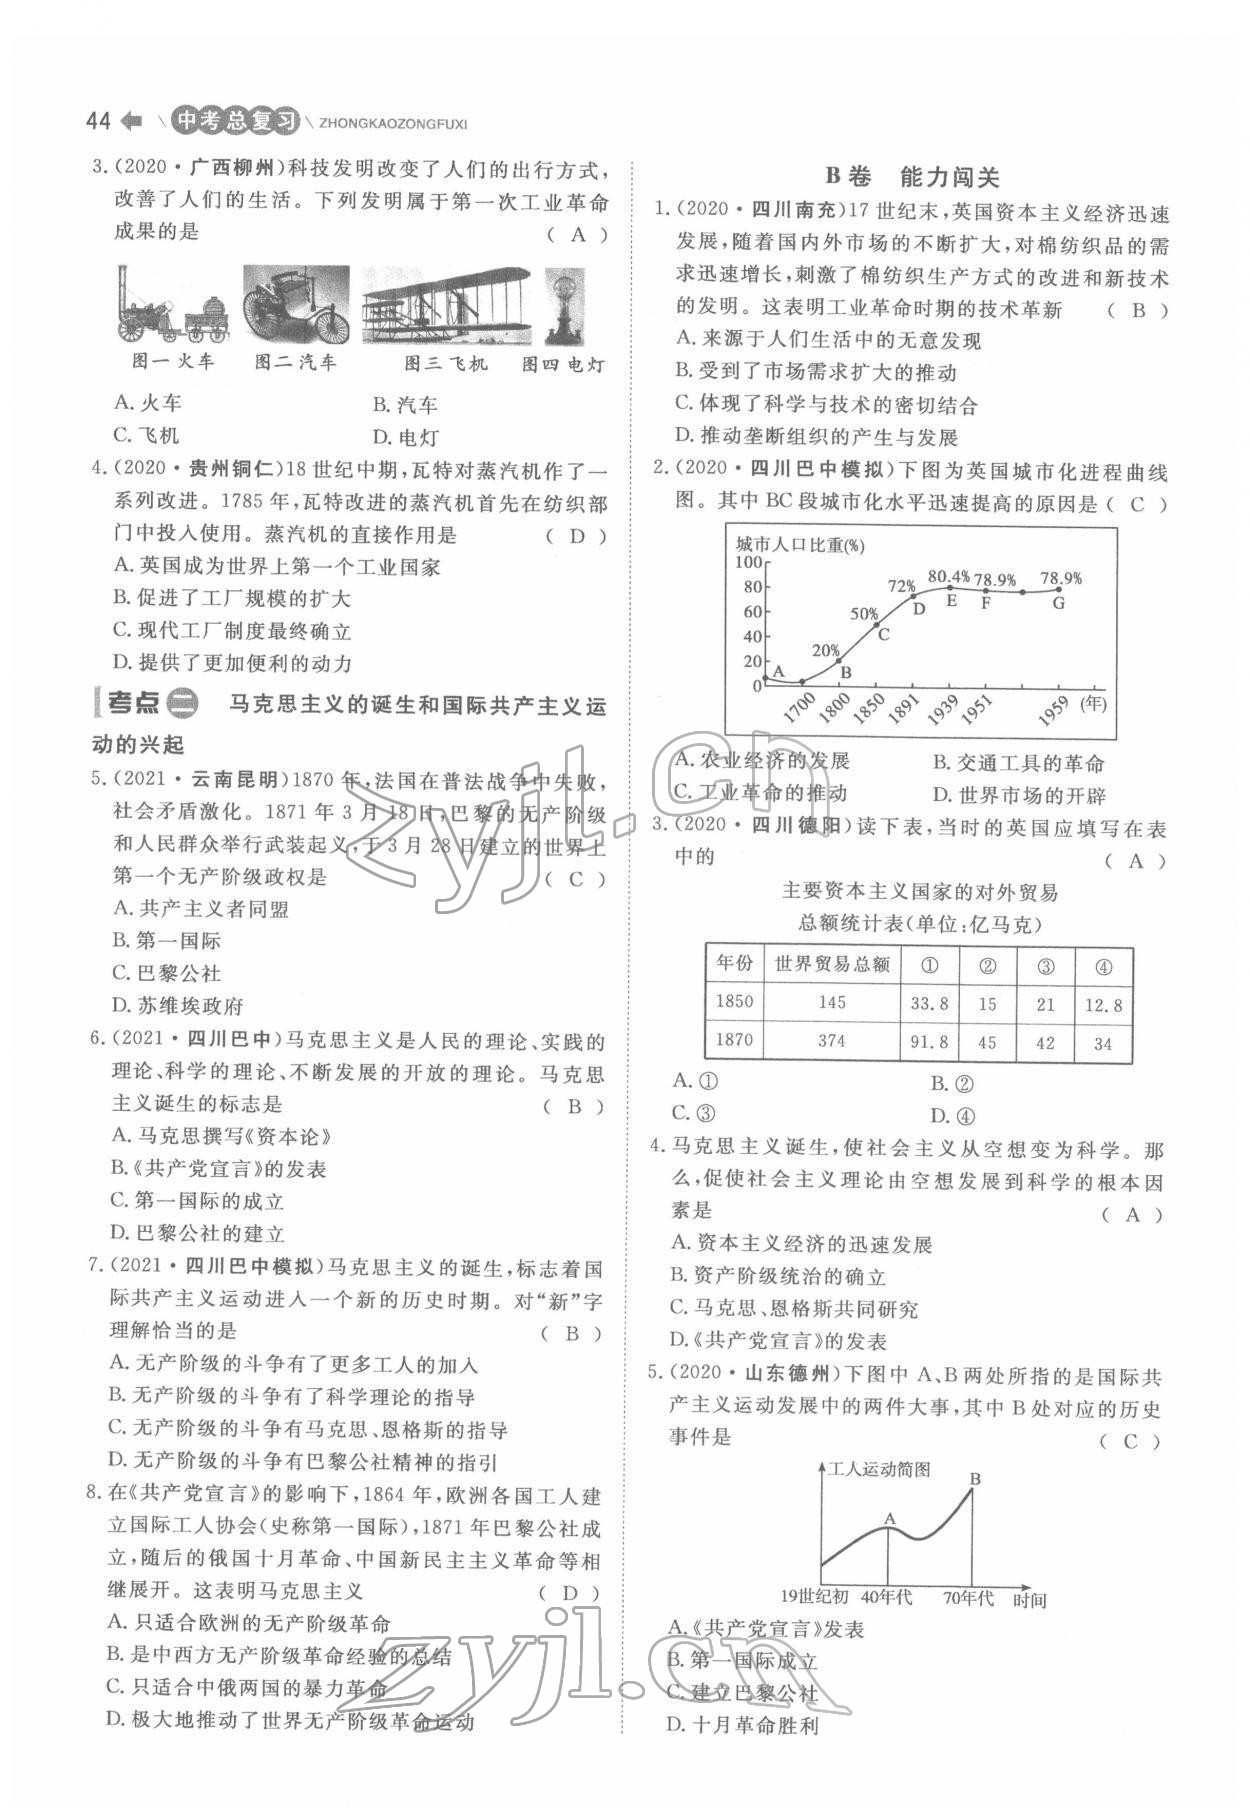 44 中考总复习 ZHONGKAOZONGFUXI
3.(2020·广西柳州)科技发明改变了人们的出行方式,
改善了人们的生活。下列发明属于第一次工业革命
成果的是 ( A )
图一火车 图二汽车 图三飞机 图四电灯
A.火车 B.汽车
C.飞机 D.电灯
4.(2020·贵州铜仁)18世纪中期,瓦特对蒸汽机作了一
系列改进。1785年,瓦特改进的蒸汽机首先在纺织部
门中投入使用。蒸汽机的直接作用是 ( D )
A.英国成为世界上第一个工业国家
B.促进了工厂规模的扩大
C.现代工厂制度最终确立
D.提供了更加便利的动力
考点二 马克思主义的诞生和国际共产主义运
动的兴起
5.(2021·云南昆明)1870年,法国在普法战争中失败,
社会矛盾激化。1871年3月18日,巴黎的无产阶级
和人民群众举行武装起义,于3月28日建立的世界上
第一个无产阶级政权是 ( C )
A.共产主义者同盟
B.第一国际
C.巴黎公社
D.苏维埃政府
6.(2021·四川巴中)马克思主义是人民的理论、实践的
理论、科学的理论、不断发展的开放的理论。马克思
主义诞生的标志是 ( B )
A.马克思撰写《资本论》
B.《共产党宣言》的发表
C.第一国际的成立
D.巴黎公社的建立
7.(2021·四川巴中模拟)马克思主义的诞生,标志着国
际共产主义运动进入一个新的历史时期。对“新”字
理解恰当的是 ( B )
A.无产阶级的斗争有了更多工人的加入
B.无产阶级的斗争有了科学理论的指导
C.无产阶级的斗争有马克思、恩格斯的指导
D.无产阶级的斗争有巴黎公社精神的指引
8.在《共产党宣言》的影响下,1864年,欧洲各国工人建
立国际工人协会(史称第一国际),1871年巴黎公社成
立,随后的俄国十月革命、中国新民主主义革命等相
继展开。这表明马克思主义 ( D )
A.只适合欧洲的无产阶级革命
B.是中西方无产阶级革命经验的总结
C.只适合中俄两国的暴力革命
D.极大地推动了世界无产阶级革命运动
B卷 能力闯关
1.(2020·四川南充)17世纪末,英国资本主义经济迅速
发展,随着国内外市场的不断扩大,对棉纺织品的需
求迅速增长,刺激了棉纺织生产方式的改进和新技术
的发明。这表明工业革命时期的技术革新 ( B )
A.来源于人们生活中的无意发现
B.受到了市场需求扩大的推动
C.体现了科学与技术的密切结合
D.推动垄断组织的产生与发展
2.(2020·四川巴中模拟)下图为英国城市化进程曲线
图。其中BC段城市化水平迅速提高的原因是 ( C )
城市人口比重(%)
100
80 72% 80.4% 78.9% 78.9%
60 50% D E F G
40 C
20 20%
A B
0
1700 1800 1850 1891 1939 1951 1959 (年)
A.农业经济的发展 B.交通工具的革命
C.工业革命的推动 D.世界市场的开辟
3.(2020·四川德阳)读下表,当时的英国应填写在表
中的 ( A )
主要资本主义国家的对外贸易
总额统计表(单位:亿马克)
年份 世界贸易总额 ① ② ③ ④
1850 145 33.8 15 21 12.8
1870 374 91.8 45 42 34
A.① B.②
C.③ D.④
4.马克思主义诞生,使社会主义从空想变为科学。那
么,促使社会主义理论由空想发展到科学的根本因
素是 ( A )
A.资本主义经济的迅速发展
B.资产阶级统治的确立
C.马克思、恩格斯共同研究
D.《共产党宣言》的发表
5.(2020·山东德州)下图中A、B两处所指的是国际共
产主义运动发展中的两件大事,其中B处对应的历史
事件是 ( C )
工人运动简图
B
A
19世纪初 40年代 70年代 时间
A.《共产党宣言》发表
B.第一国际成立
C.建立巴黎公社
D.十月革命胜利
zyjl.cn
zyjl.cn